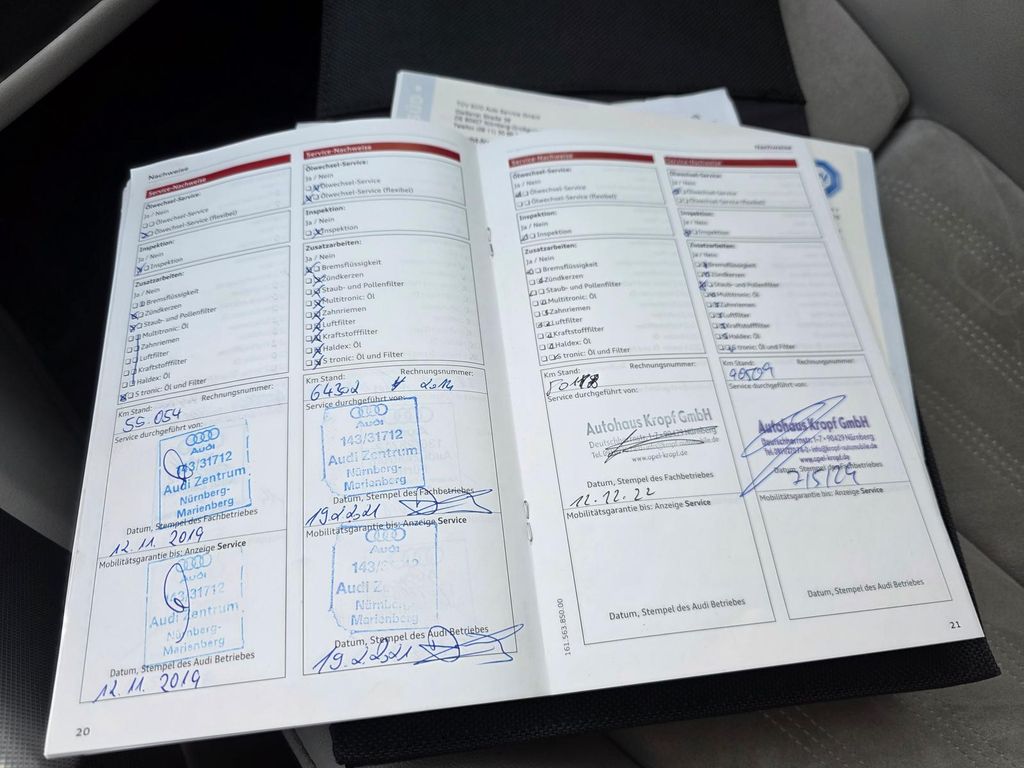 TÜV SÜD Auto Service GmbH
Nachweise
Service-Nachweise
Ölwechsel-Service:
Ja / Nein
Ölwechsel-Service
Ölwechsel-Service (flexibel)
Inspektion:
Ja / Nein
Inspektion
Zusatzarbeiten:
Ja / Nein
Bremsflüssigkeit
Zündkerzen
Staub- und Pollenfilter
Multitronic: Öl
Zahnriemen
Luftfilter
Kraftstofffilter
Haldex: Öl
S tronic: Öl und Filter
Km Stand: Rechnungsnummer:
55.054
Service durchgeführt von:
Audi
143/31712
Audi Zentrum
Nürnberg-
Marienberg
Datum, Stempel des Fachbetriebes
12.11.2019
Mobilitätsgarantie bis: Anzeige Service
Audi
143/31712
Audi Zentrum
Nürnberg-
Marienberg
Datum, Stempel des Audi Betriebes
12.11.2019
20
Service-Nachweise
Ölwechsel-Service:
Ja / Nein
Ölwechsel-Service
Ölwechsel-Service (flexibel)
Inspektion:
Ja / Nein
Inspektion
Zusatzarbeiten:
Ja / Nein
Bremsflüssigkeit
Zündkerzen
Staub- und Pollenfilter
Multitronic: Öl
Zahnriemen
Luftfilter
Kraftstofffilter
Haldex: Öl
S tronic: Öl und Filter
Km Stand: Rechnungsnummer:
64302
Service durchgeführt von:
Audi
143/31712
Audi Zentrum
Nürnberg-
Marienberg
Datum, Stempel des Fachbetriebes
19.2.2021
Mobilitätsgarantie bis: Anzeige Service
Audi
Nürnberg-
Marienberg
Datum, Stempel des Audi Betriebes
19.2.2021
Nachweise
Service-Nachweise
Ölwechsel-Service:
Ja / Nein
Ölwechsel-Service
Ölwechsel-Service (flexibel)
Inspektion:
Ja / Nein
Inspektion
Zusatzarbeiten:
Ja / Nein
Bremsflüssigkeit
Zündkerzen
Staub- und Pollenfilter
Multitronic: Öl
Zahnriemen
Luftfilter
Kraftstofffilter
Haldex: Öl
S tronic: Öl und Filter
Km Stand: Rechnungsnummer:
Service durchgeführt von:
Autohaus Kropf GmbH
Deutschherrnstr. 1-7 • 90429 Nürnberg
www.opel-kropf.de
Datum, Stempel des Fachbetriebes
12.12.22
Mobilitätsgarantie bis: Anzeige Service
Datum, Stempel des Audi Betriebes
161.563.850.00
Service-Nachweise
Ölwechsel-Service:
Ja / Nein
Ölwechsel-Service
Ölwechsel-Service (flexibel)
Inspektion:
Ja / Nein
Inspektion
Zusatzarbeiten:
Ja / Nein
Bremsflüssigkeit
Zündkerzen
Staub- und Pollenfilter
Multitronic: Öl
Zahnriemen
Luftfilter
Kraftstofffilter
Haldex: Öl
S tronic: Öl und Filter
Km Stand: Rechnungsnummer:
Service durchgeführt von:
Autohaus Kropf GmbH
Deutschherrnstr. 1-7 • 90429 Nürnberg
www.opel-kropf.de
Datum, Stempel des Fachbetriebes
7/5/24
Mobilitätsgarantie bis: Anzeige Service
Datum, Stempel des Audi Betriebes
21